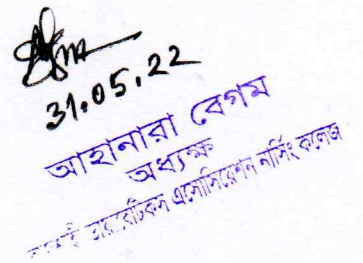 31.05.22
আহানারা বেগম
অধ্যক্ষ
ডায়াবেটিকস এসোসিয়েশন নার্সিং কলেজ